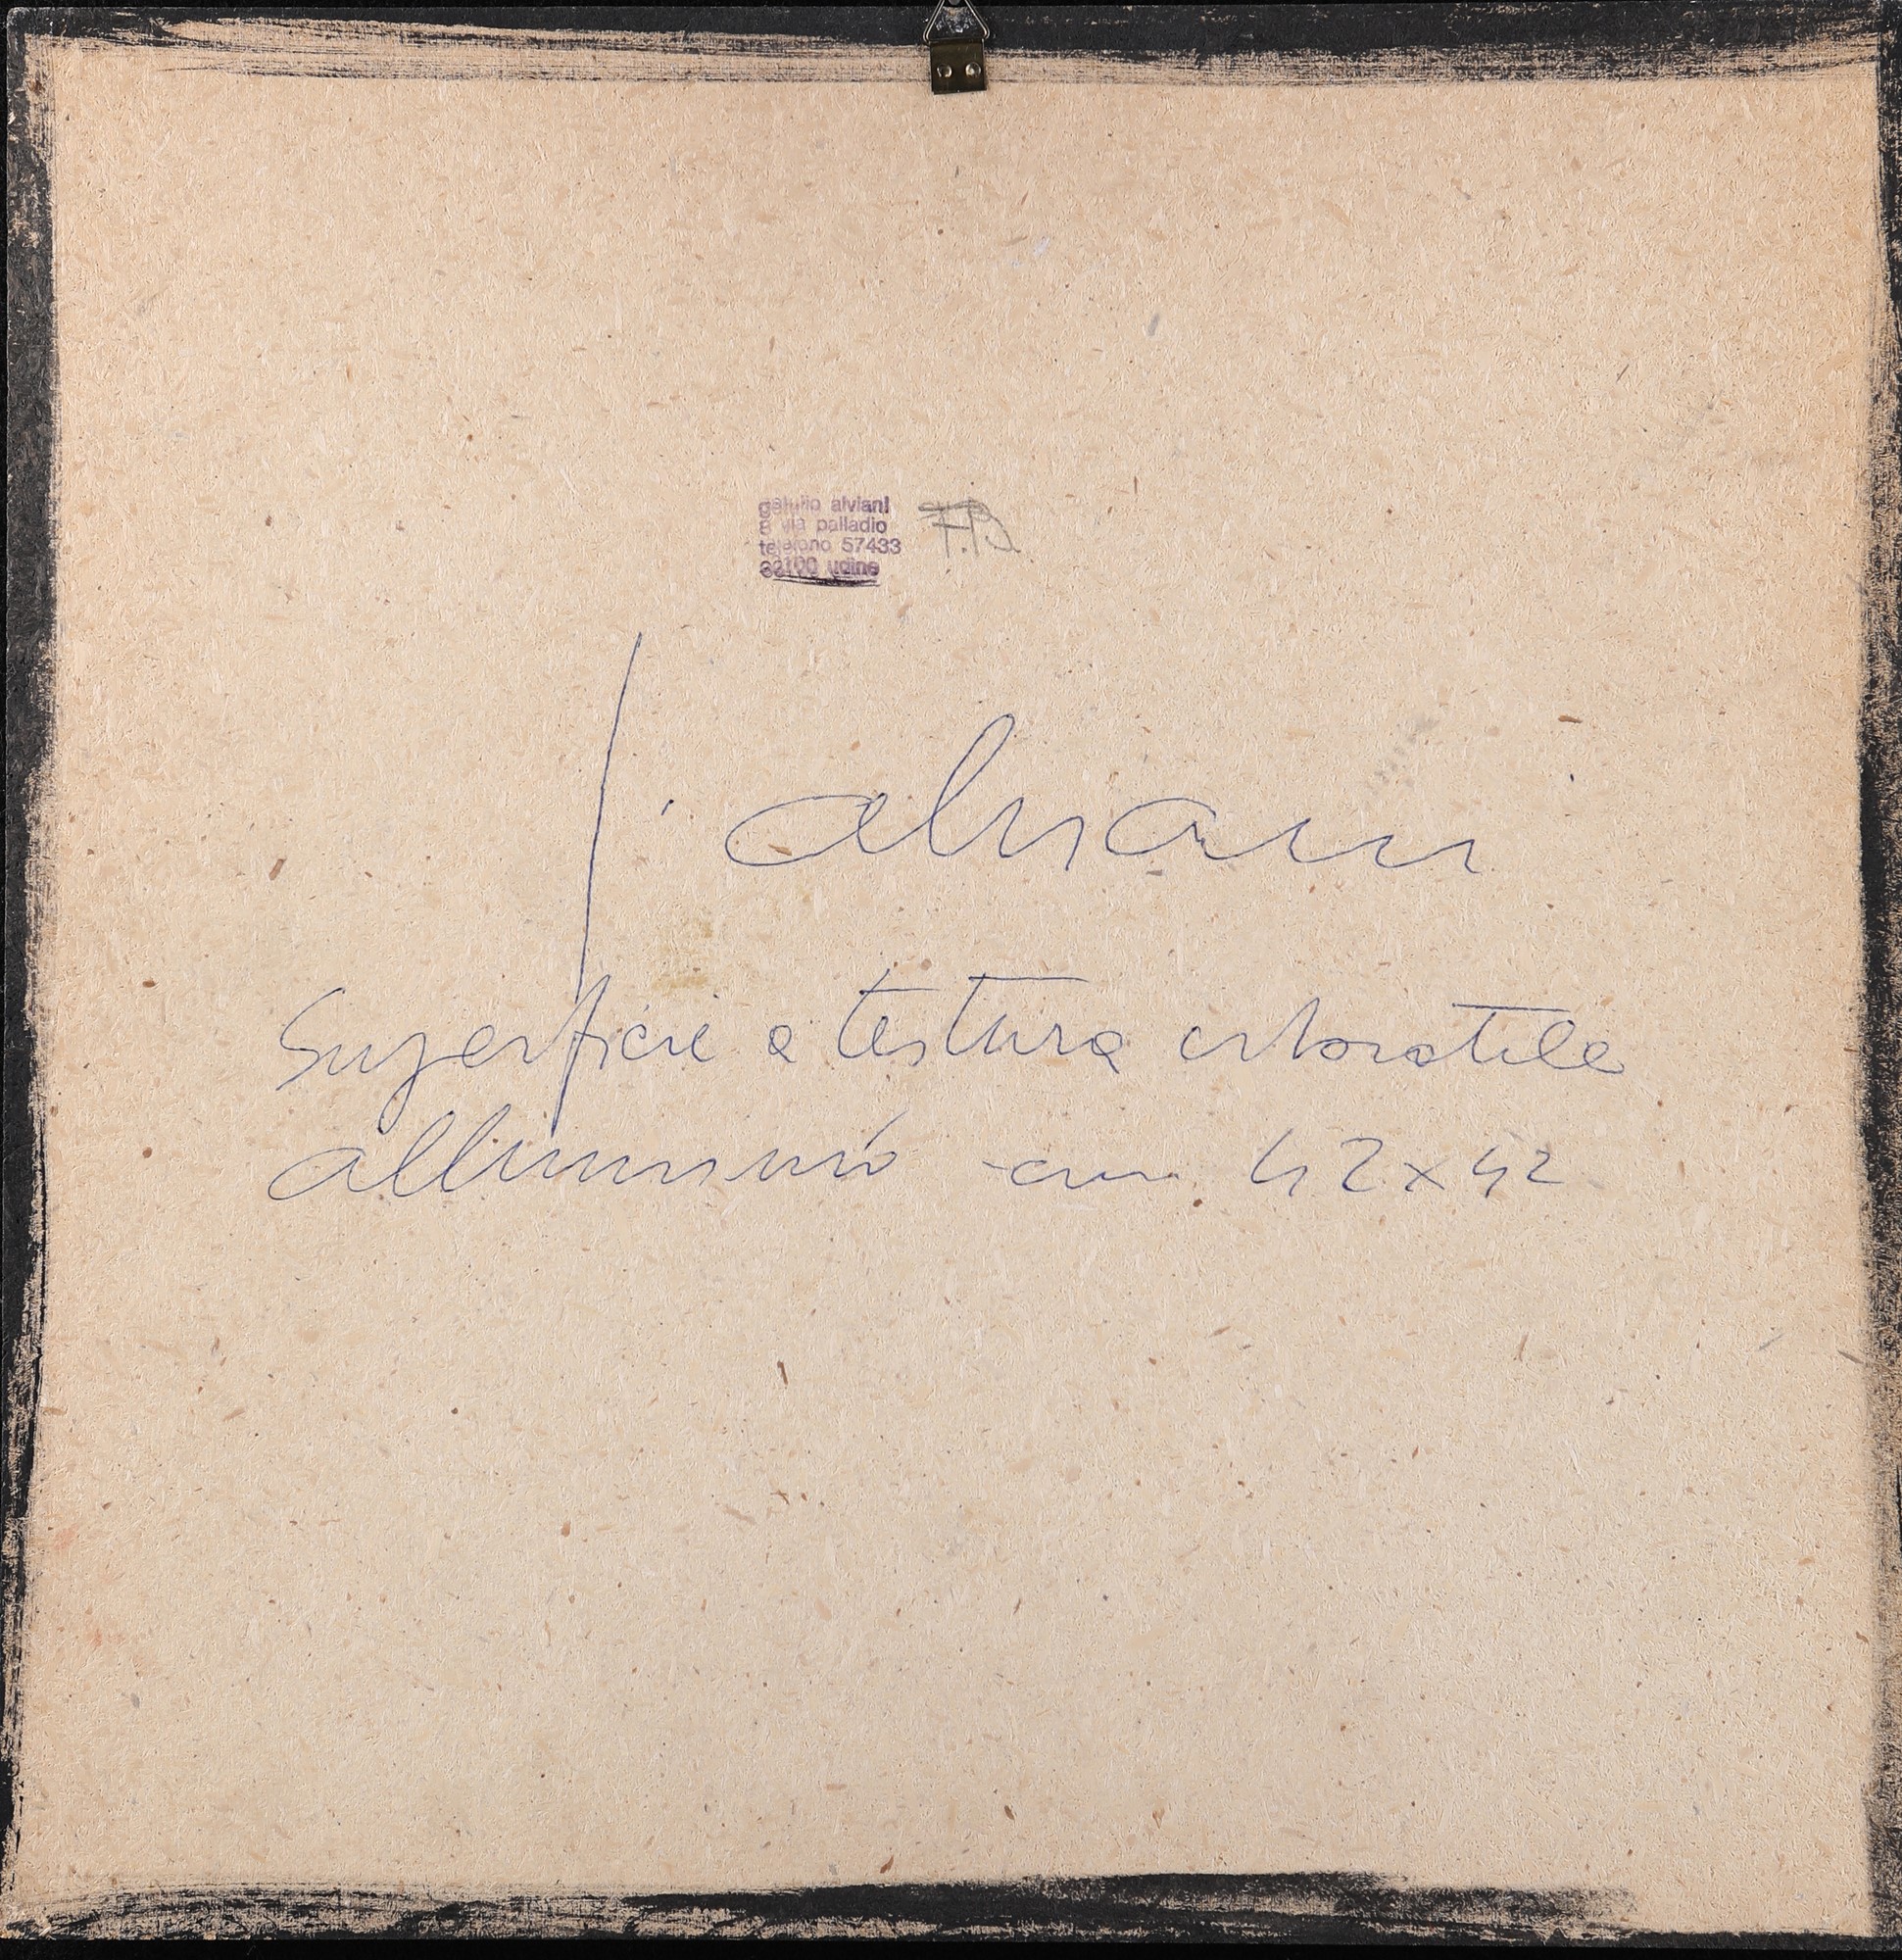 getulio alviani
8 via palladio
telefono 57433
33100 udine
F.B.
g. alviani
Superficie a testura vibratile
alluminio cm 42x42